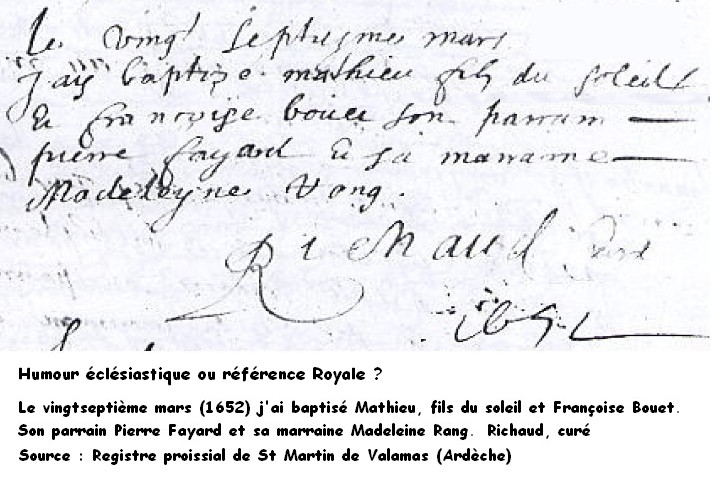 Le vingt septiesme mars
j'ay baptize mathieu fils du soleil
& francoise bouet son parrain
pierre fayard & sa marraine
Madeleyne
Richaud curé
1652
Humour éclésiastique ou référence Royale ?
Le vingtseptième mars (1652) j'ai baptisé Mathieu, fils du soleil et Françoise Bouet.
Son parrain Pierre Fayard et sa marraine Madeleine Rang. Richaud, curé
Source : Registre proissial de St Martin de Valamas (Ardèche)